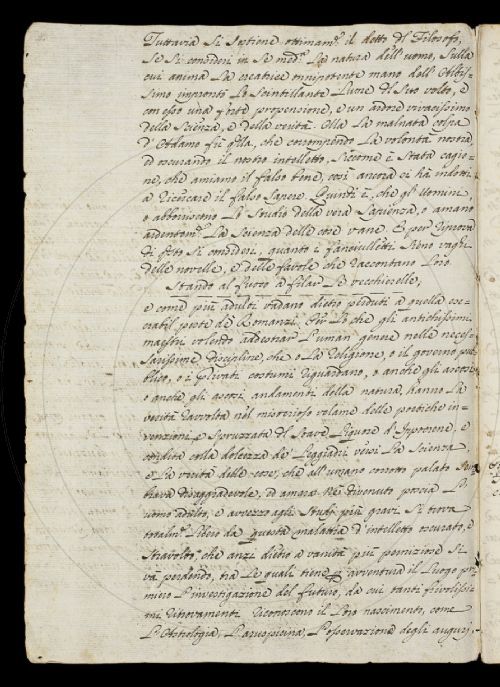 Tuttavia si sostiene ottimam.te il detto del Filosofo,
se si consideri in se med.a la natura dell'uomo, sulla
cui anima la creatrice onnipotente mano dell'Altis-
simo impronto lo scintillante lume del suo volto, e
con esso una forte propensione, e un ardore vivacissimo
della scienza, e della verità. Mla la malnata colpa
d'Adamo fù q.lla, che corrompendo la volontà nostra,
ed oscurando il nostro intelletto, siccome è stata cagio-
ne, che amiamo il falso bene, così ancora ci hà indotti
a ricercare il falso sapere. Quinti è, che gl'Uomini
o abboriscono lo studio della vera sapienza, o amano
ardentem.te la scienza delle cose vane. E per ignora
di fatto si consideri, quanto i fanciulletti sieno vaghi
delle novelle, e delle favole che raccontano loro
Stando al fuoco a filar le vecchierelle,
e come più adulti vadano dietro perduti a quella ese-
crabil peste de Romanzi. Per lo che gli antichissimi
maestri volendo addestrar l'uman genere nelle neces-
sarissime discipline, che o la religione, o il governo pub-
blico, o i privati costumi riguardano, o anche gli
o anche gli ascosi andamenti della natura, hanno la
verità ravvolta nel misterioso velame delle poetiche in-
venzioni, e spruzzata di soave liquore d'Ippocrene, e
condita colla dolcezza de' leggiadri versi la scienza,
e la verità delle cose, che all'umano corrotto palato
disaggradevole, ed amara. Nè divenuto poscia l'
uomo adulto, e avvezzo agli studj più gravi si trova
totalm.te libero da questa malattia d'intelletto oscurato, e
stravolto, che anzi dietro a vanità più perniziose si
và perdendo, tra le quali tiene p avventura il luogo pri-
miero l'investigazione del futuro, da cui tanti frivolissi-
mi ritrovamenti riconoscono il loro nascimento, come
l'Astrologia, l'aruspicina, l'osservazione degli augurj,